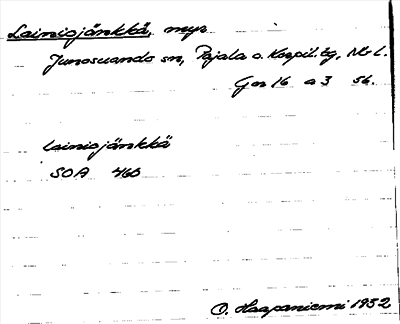 Lainiojänkkä, myr
Junosuando sn, Pajala o. Korpil. tg, Nb l.
Gen 16 a 3 56.
Lainiojänkkä
SOA 460
O. Haapaniemi 1932